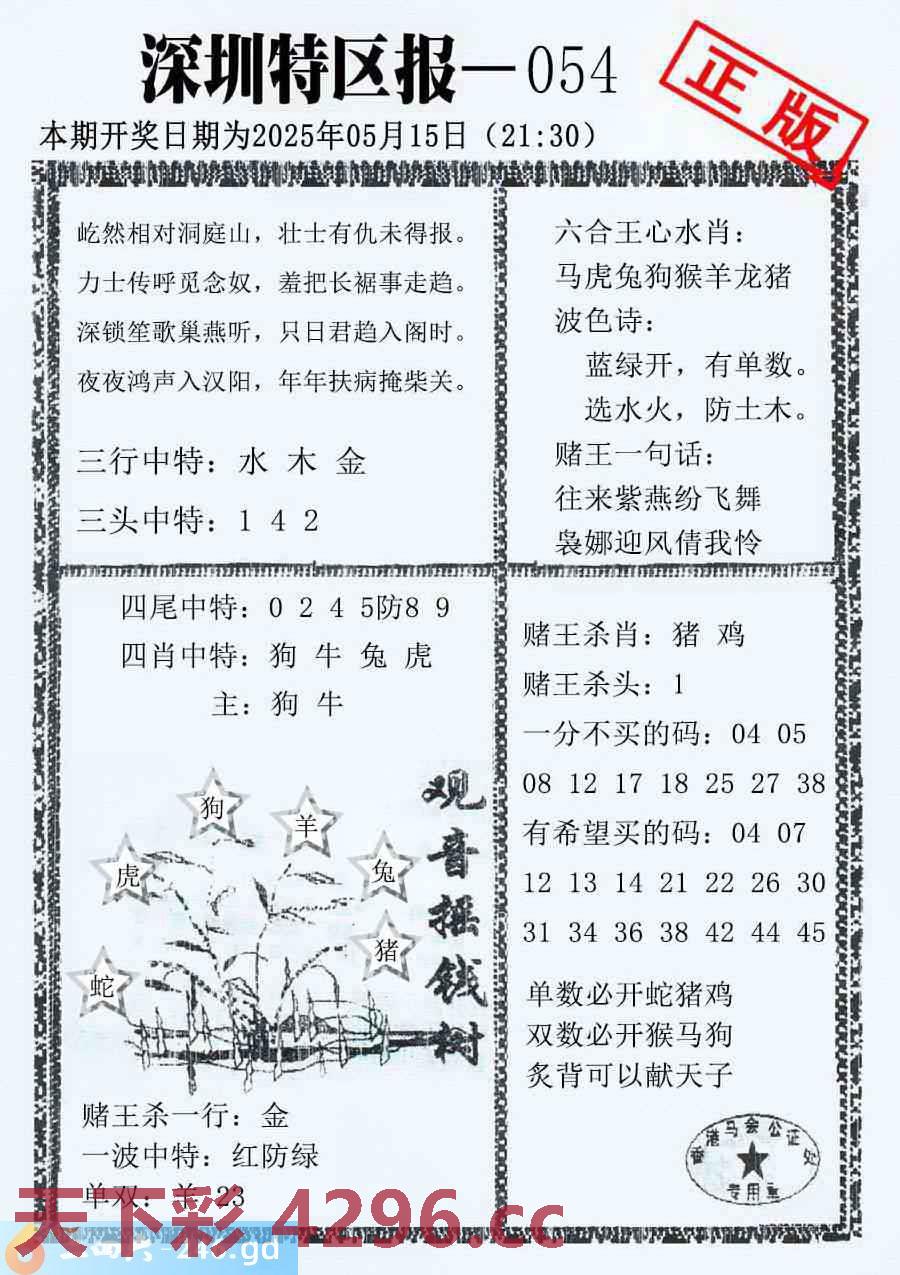 深圳特区报—054
正版
本期开奖日期为2025年05月15日（21:30）
屹然相对洞庭山，壮士有仇未得报。
力士传呼觅念奴，羞把长裾事走趋。
深锁笙歌巢燕听，只日君趋入阁时。
夜夜鸿声入汉阳，年年扶病掩柴关。
三行中特：水 木 金
三头中特：1 4 2
六合王心水肖：
马虎兔狗猴羊龙猪
波色诗：
蓝绿开，有单数。
选水火，防土木。
赌王一句话：
往来紫燕纷飞舞
袅娜迎风倩我怜
四尾中特：0 2 4 5防8 9
四肖中特：狗 牛 兔 虎
主：狗 牛
狗
羊
虎
兔
猪
蛇
观音摇钱树
赌王杀一行：金
一波中特：红防绿
单双：羊 23
赌王杀肖：猪 鸡
赌王杀头：1
一分不买的码：04 05
08 12 17 18 25 27 38
有希望买的码：04 07
12 13 14 21 22 26 30
31 34 36 38 42 44 45
单数必开蛇猪鸡
双数必开猴马狗
炙背可以献天子
香港马会公证处
专用章
天下彩 4296.cc